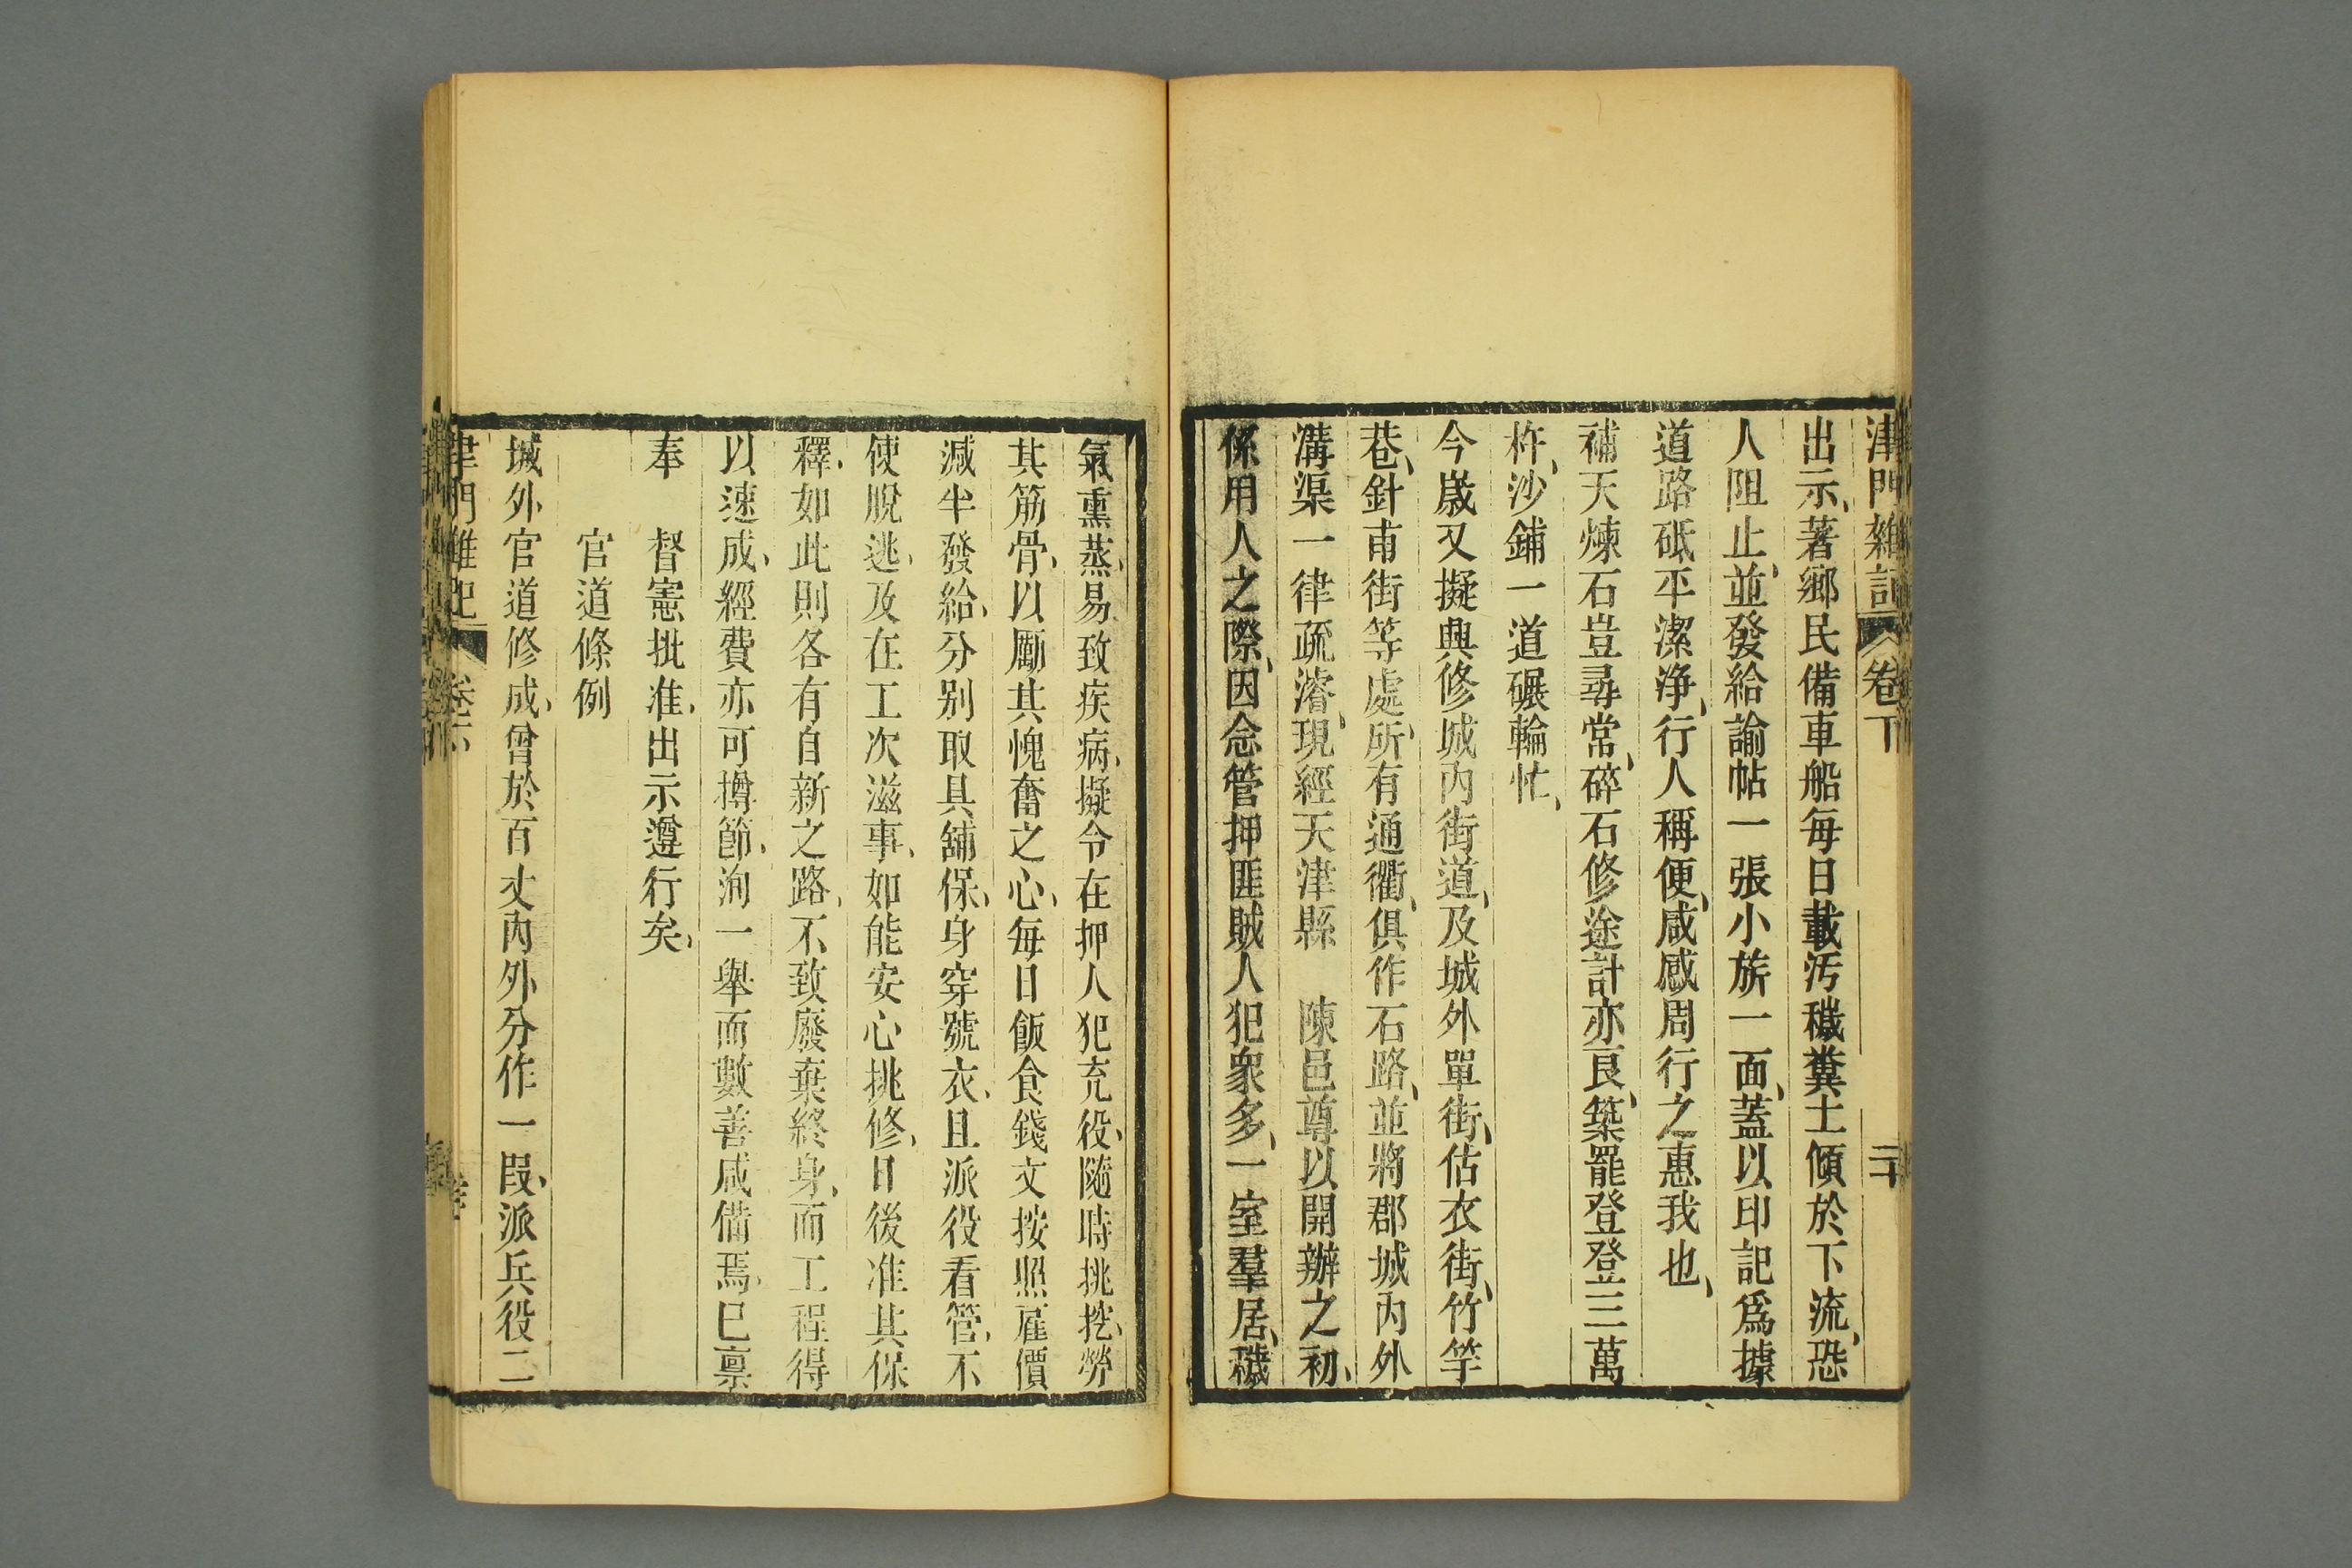 津門雜記 卷下 二十
出示、著鄉民備車船每日載污穢糞土傾於下流、恐
人阻止、並發給諭帖一張小旂一面、蓋以印記爲據
道路砥平潔淨、行人稱便、咸感周行之惠我也、
補天煉石豈尋常、碎石修途計亦良、築罷登登三萬
杵、沙鋪一道碾輪忙、
今歲又擬興修城內街道、及城外單街、估衣街、竹竿
巷、針市街等處、所有通衢、俱作石路、並將郡城內外
溝渠一律疏濬、現經天津縣　陳邑尊以開辦之初、
係用人之際、因念管押匪賊人犯衆多、一室羣居、穢
氣熏蒸、易致疾病、擬令在押人犯充役、隨時挑挖、勞
其筋骨、以勵其愧奮之心、每日飯食錢文按照雇價
減半發給、分別取具舖保、身穿號衣、且派役看管、不
使脫逃、及在工次滋事、如能安心挑修、日後准其保
釋、如此則各有自新之路、不致廢棄終身、而工程得
以速成、經費亦可撙節、洵一舉而數善咸備焉、已稟
奉　督憲批准、出示遵行矣、
官道條例
城外官道修成、曾於百丈內外分作一段、派兵役二
津門雜記